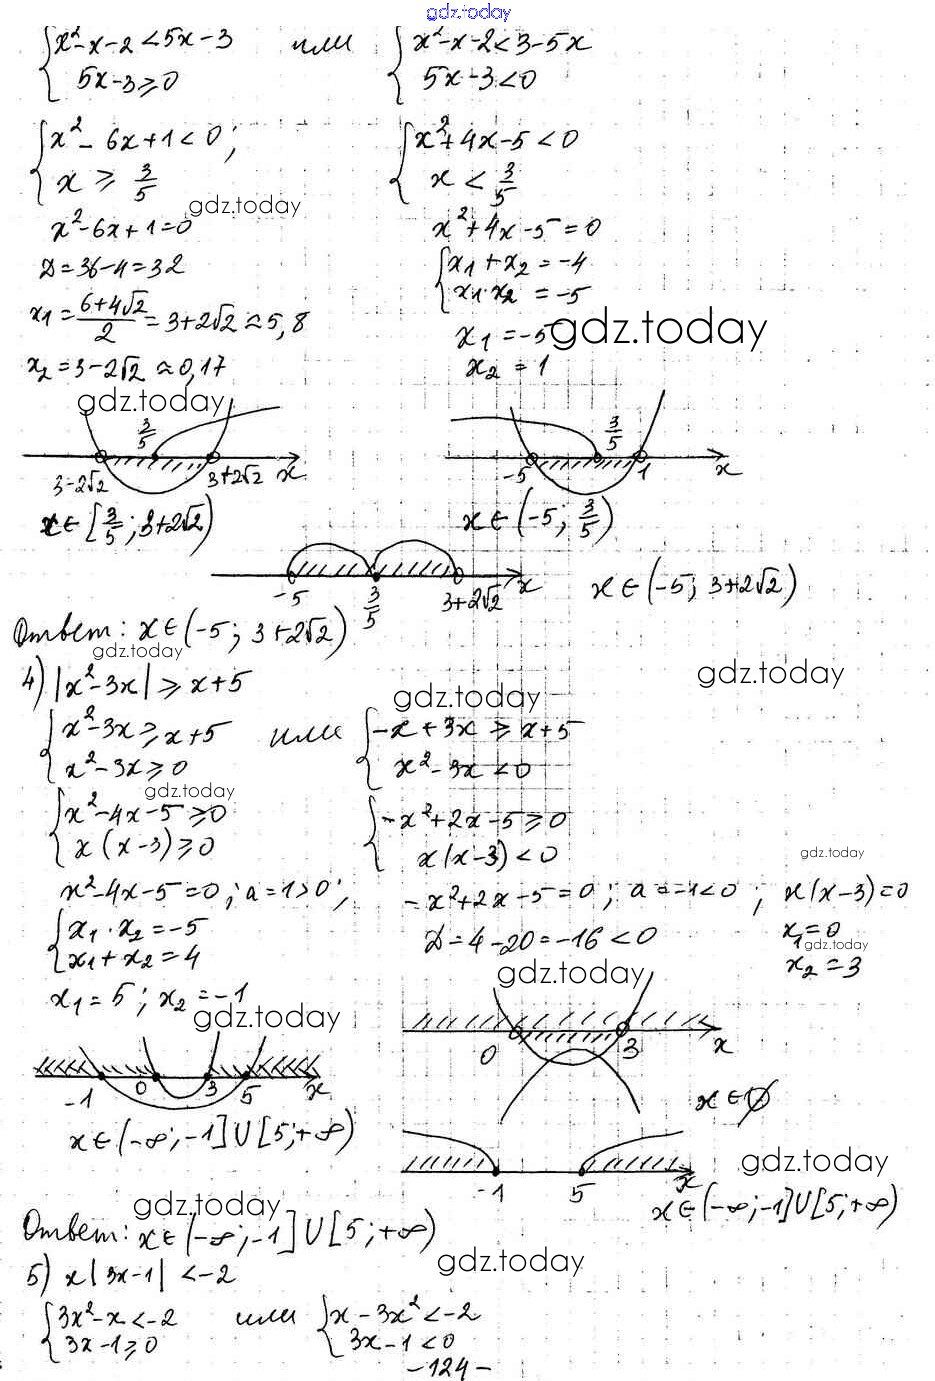 gdz.today
{x²-x-2<5x-3 или {x²-x-2<3-5x
5x-3≥0 5x-3<0
{x²-6x+1<0; {x²+4x-5<0
x ≥ 3/5 x < 3/5
gdz.today
x²-6x+1=0 x²+4x-5=0
D=36-4=32 {x₁+x₂=-4
x₁·x₂=-5
x₁=(6+4√2)/2=3+2√2≈5,8 x₁=-5
gdz.today
x₂=3-2√2≈0,17 x₂=1
gdz.today
3/5 3/5
3-2√2 3+2√2 x -5 1 x
x∈[3/5; 3+2√2) x∈(-5; 3/5)
-5 3/5 3+2√2 x x∈(-5; 3+2√2)
Ответ: x∈(-5; 3+2√2)
gdz.today
gdz.today
4) |x²-3x|≥x+5
gdz.today
{x²-3x≥x+5 или {-x+3x≥x+5
x²-3x≥0 x²-3x<0
gdz.today
{x²-4x-5≥0 {-x²+2x-5≥0
x(x-3)≥0 x(x-3)<0
gdz.today
x²-4x-5=0; a=1>0; -x²+2x-5=0; a=-1<0; x(x-3)=0
{x₁·x₂=-5 D=4-20=-16<0 x₁=0
gdz.today
x₁+x₂=4 x₂=3
gdz.today
x₁=5; x₂=-1
gdz.today
0 3 x
-1 0 3 5 x
x∈∅
x∈(-∞;-1]∪[5;+∞)
gdz.today
-1 5 x
x∈(-∞;-1]∪[5;+∞)
gdz.today
Ответ: x∈(-∞;-1]∪[5;+∞)
gdz.today
5) x|3x-1|<-2
{3x²-x<-2 или {x-3x²<-2
3x-1≥0 3x-1<0
-124-